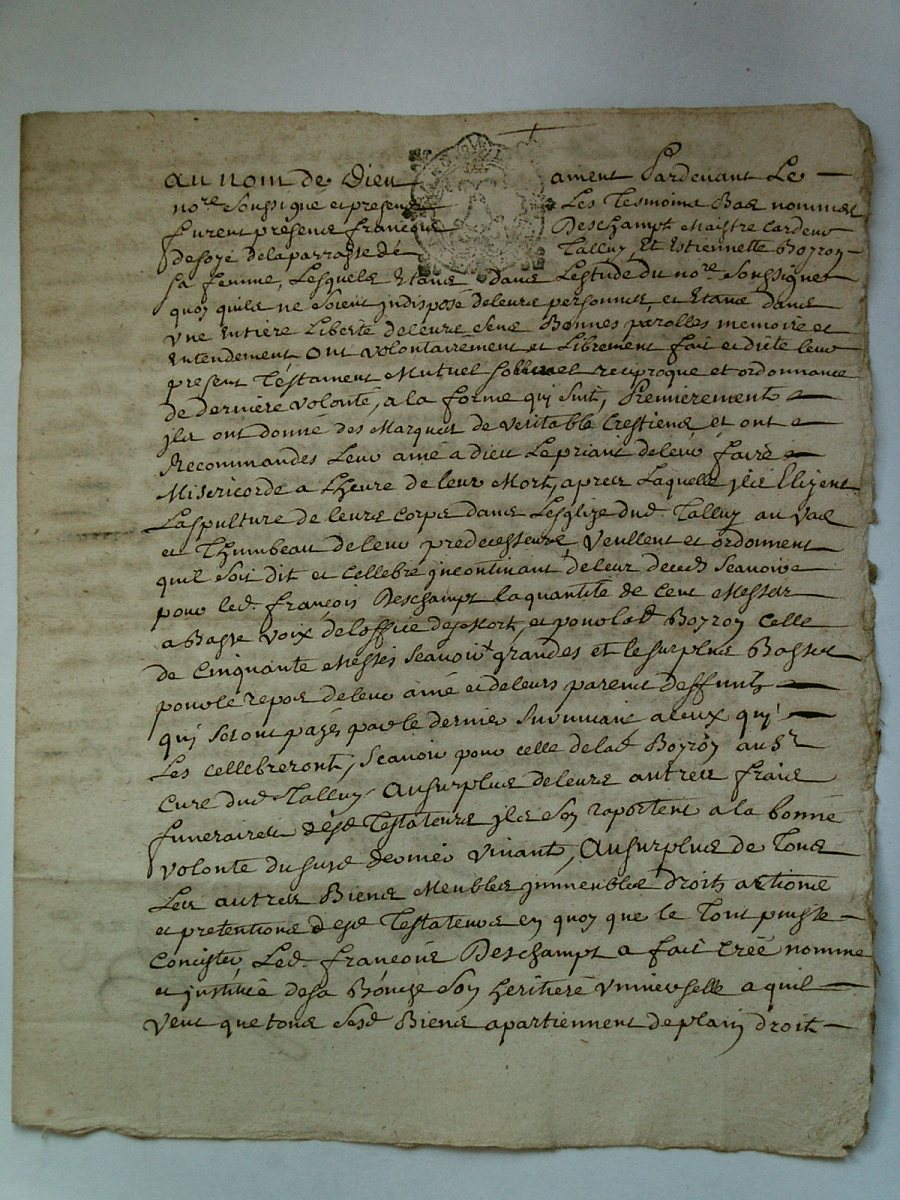 au nom de Dieu ament Pardevant Le
no.re Soussigne et presence Les Tesmoins Bas nommes
furent présens François Deschampt Maistre Cardeur
de soye de la parroisse de Talluy Et Estiennette Boyron
sa femme, Lesquels Etans dans Lestude du no.re Soussigne
quoy quils ne soient jndispose de leurs personnes et Etans dans
vne entiere Liberté de leurs sens Bonnes parolles memoire et
Entendement Ont volontairement et Librement fait et dicte leur
present Testament Mutuel reciproque et ordonnance
de derniere volonté, a la forme qui suit, Premierement
jls ont donné des Marques de veritable Crestiens et ont
Recommandes Leur ame a dieu Le priant de leur faire
Misericorde a Lheure de leur Mort, apres Laquelle jls Elizent
La spulture de leurs corps dans Lesglize dud. Talluy au vas
et Thumbeau de leur predecesseurs, veullent et ordonnent
quil soit dit et cellebré jncontinant de leur deceds Scavoir
pour led. françois Deschampt la quantité de cent Messes
a Basse voix de loffice des Mort, et pour lad. Boyron celle
de Cinquante Messes scavoir grandes et le surplus Basses
pour le repos de leur ame et de leurs parents deffunts
qui seront payés par le dernier survivant a ceux qui
Les cellebreront, Scavoir pour celle de lad. Boyron au Sr
Cure dud. Talluy, Au surplus de leurs autres frais
funeraires desd. Testateurs jls s'en raportent a la bonne
volonte du susd. dernier vivant, Au surplus de Tous
Les autres Biens Meubles jmmeubles droits actions
et pretentions desd. Testateurs en quoy que le Tout puisse
Concister, Led. françois Deschampt a fait créé nommé
et jnstitué de sa Bouche son heritiere vniverselle a quil
veut que tous sesd. Biens apartiennent de plain droit